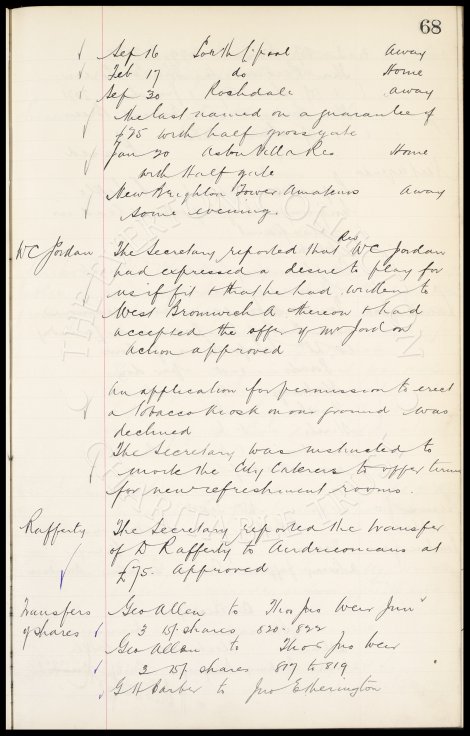 68
Sep 16 South L'pool away
Feb 17 do Home
Sep 30 Rochdale away
the last named on a guarantee of
£25 with half gross gate
Jan 20 Aston Villa Res Home
with Half gate
New Brighton Tower Amateurs away
some evening.
WC Jordan The Secretary reported that Rev WC Jordan
had expressed a desire to play for
us if fit & that he had written to
West Bromwich A thereon & had
accepted the offer of Mr Jordon
action approved
An application for permission to erect
a tobacco kiosk on our ground was
declined
The Secretary was instructed to
invite the City Caterers to offer terms
for new refreshment rooms.
Rafferty The Secretary reported the transfer
of D Rafferty to Airdrieonians at
£75. Approved
Transfers Geo Allen to Thos Jno Weir Junr
of shares 3 shares 820-822
Geo Allan to Thos Jno Weir
3 shares 817 to 819
G H Barber to Jno Etherington